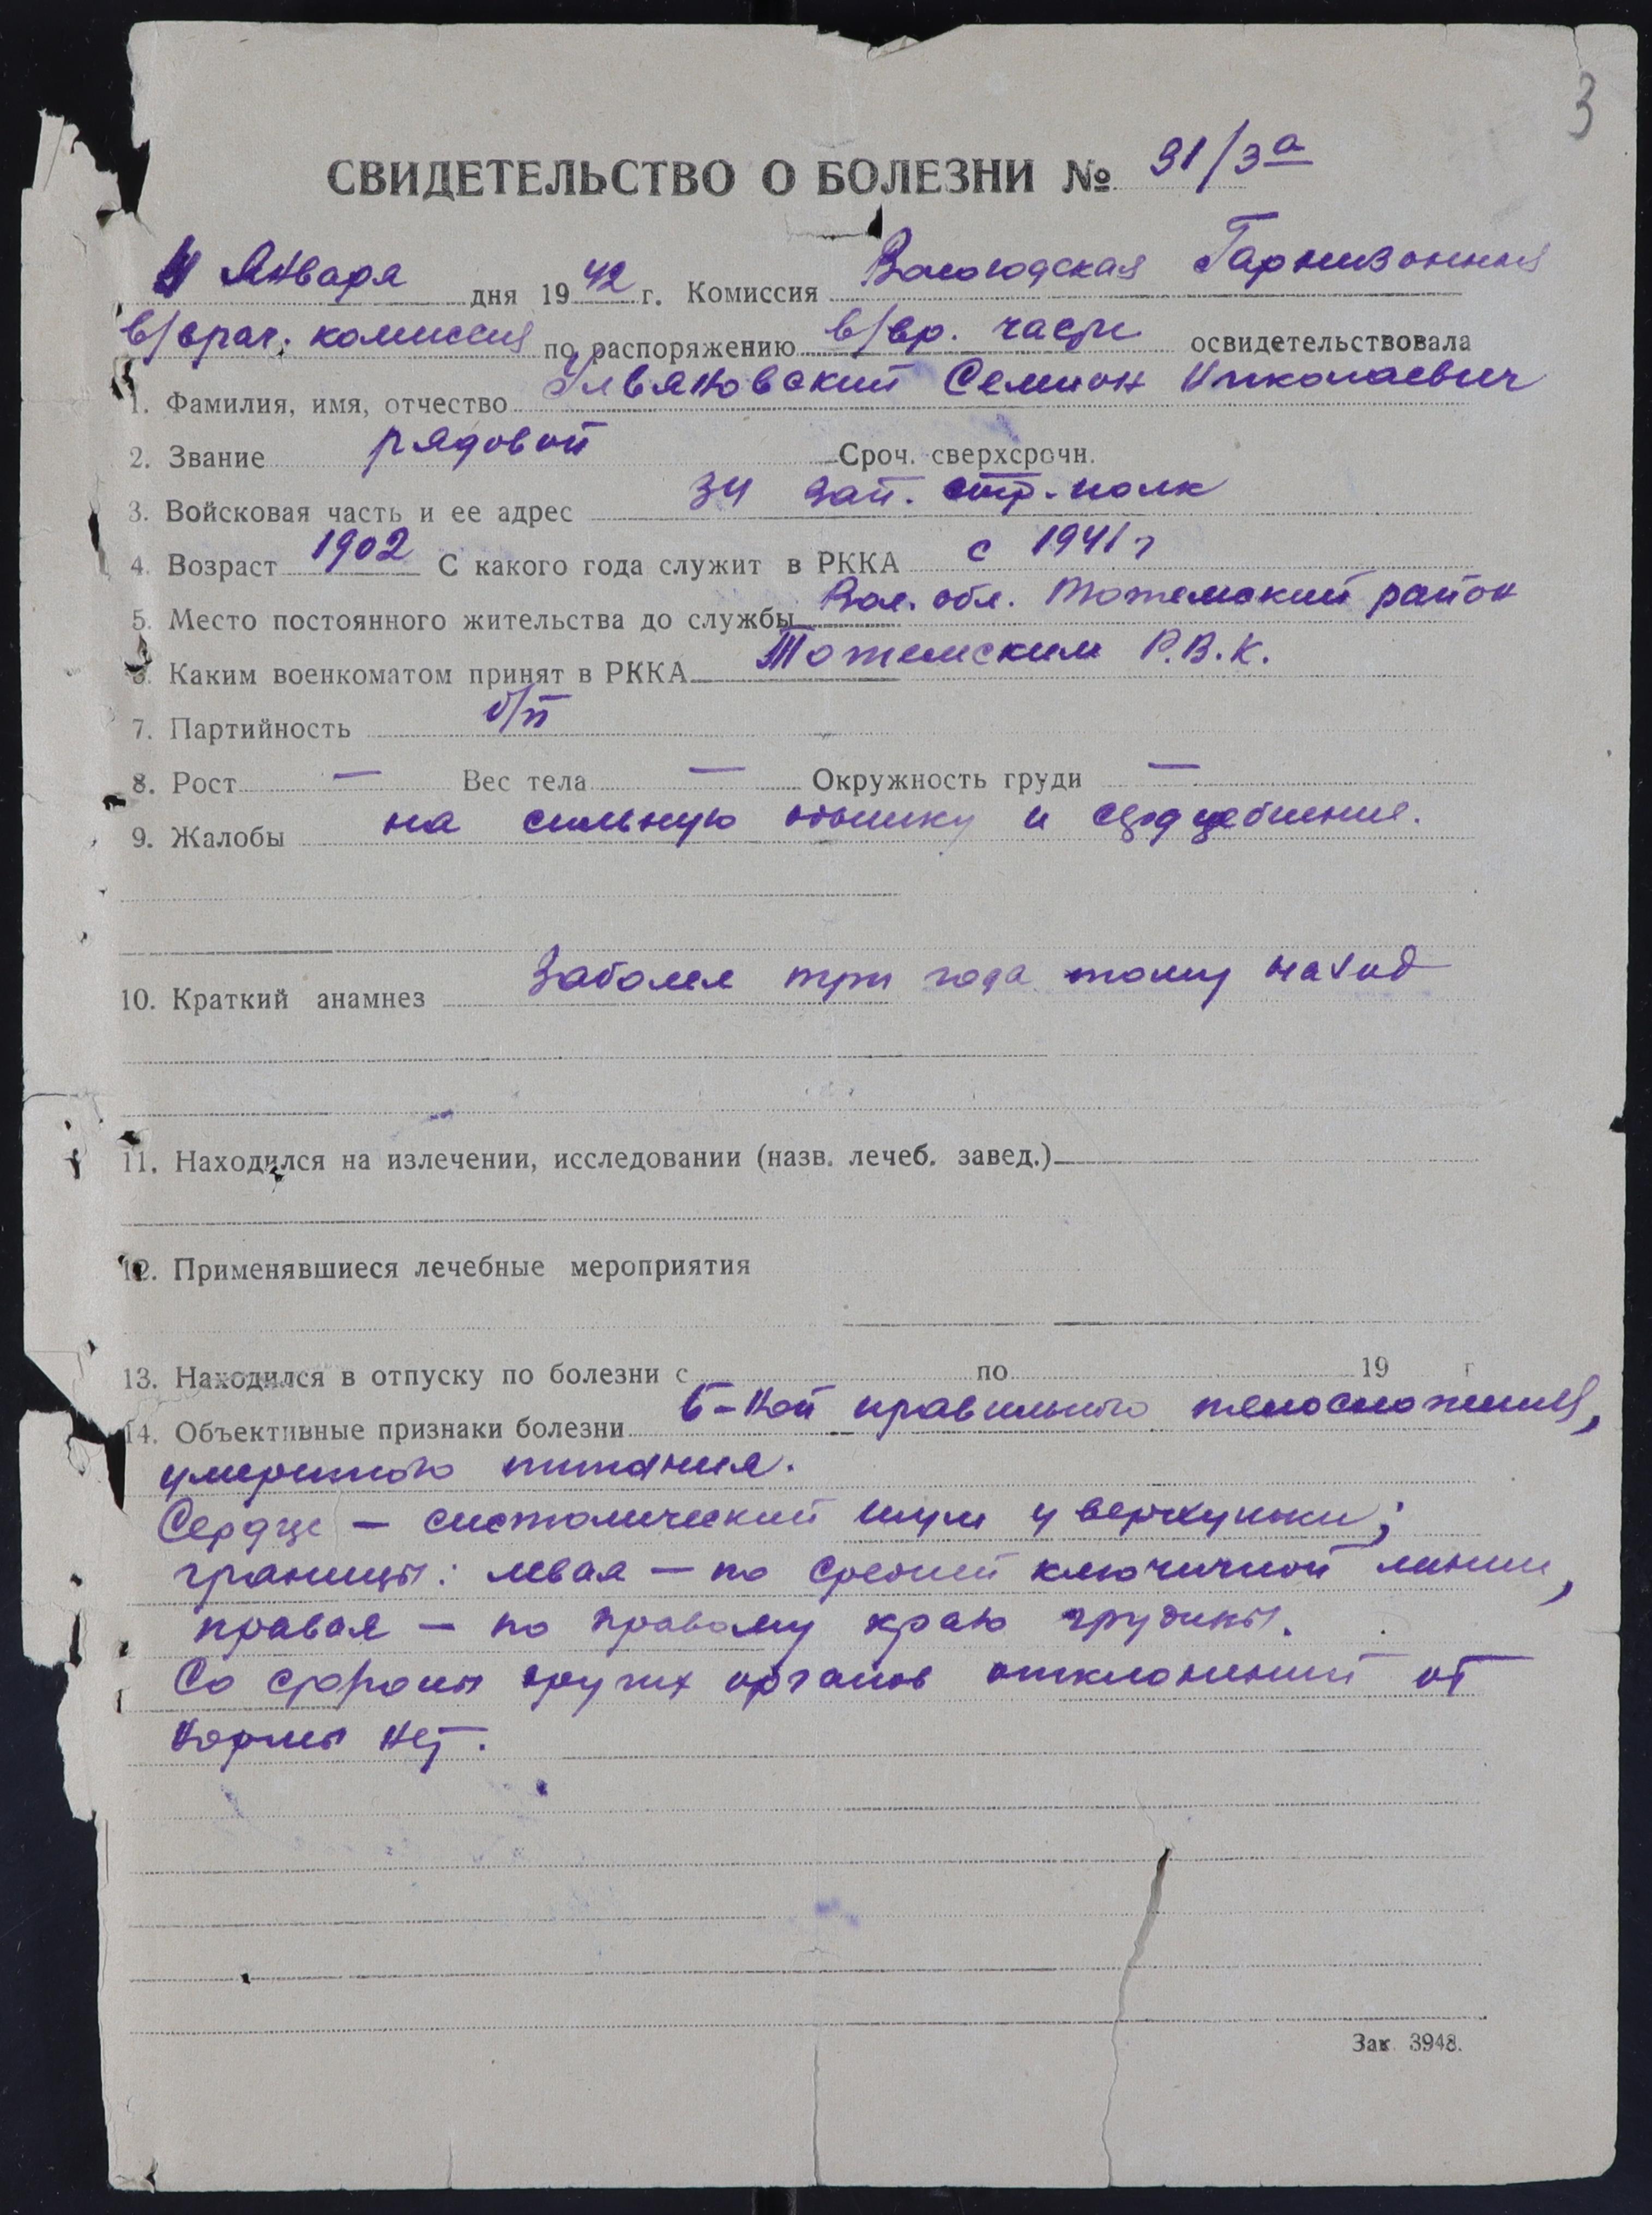 3
СВИДЕТЕЛЬСТВО О БОЛЕЗНИ № 31/3а
Января дня 1942 г. Комиссия Вологодская Гарнизонная
в/врач. комиссия по распоряжению в/вр. части освидетельствовала
1. Фамилия, имя, отчество Ульяновский Семион Николаевич
2. Звание рядовой Сроч. сверхсрочн.
3. Войсковая часть и ее адрес 34 зап. стр. полк
4. Возраст 1902 С какого года служит в РККА с 1941 г
5. Место постоянного жительства до службы Вол. обл. Тотемский район
6. Каким военкоматом принят в РККА Тотемским Р.В.К.
7. Партийность б/п
8. Рост — Вес тела — Окружность груди —
9. Жалобы на сильную отышку и сердцебиение.
10. Краткий анамнез Заболел три года тому назад
11. Находился на излечении, исследовании (назв. лечеб. завед.)
12. Применявшиеся лечебные мероприятия
13. Находился в отпуску по болезни с по 19 г
14. Объективные признаки болезни Б-ной правильного телосложения,
умеренного питания.
Сердце — систолический шум у верхушки;
границы: левая — по средней ключичной линии,
правая — по правому краю грудины.
Со стороны других органов отклонений от
нормы нет.
Зак. 3948.